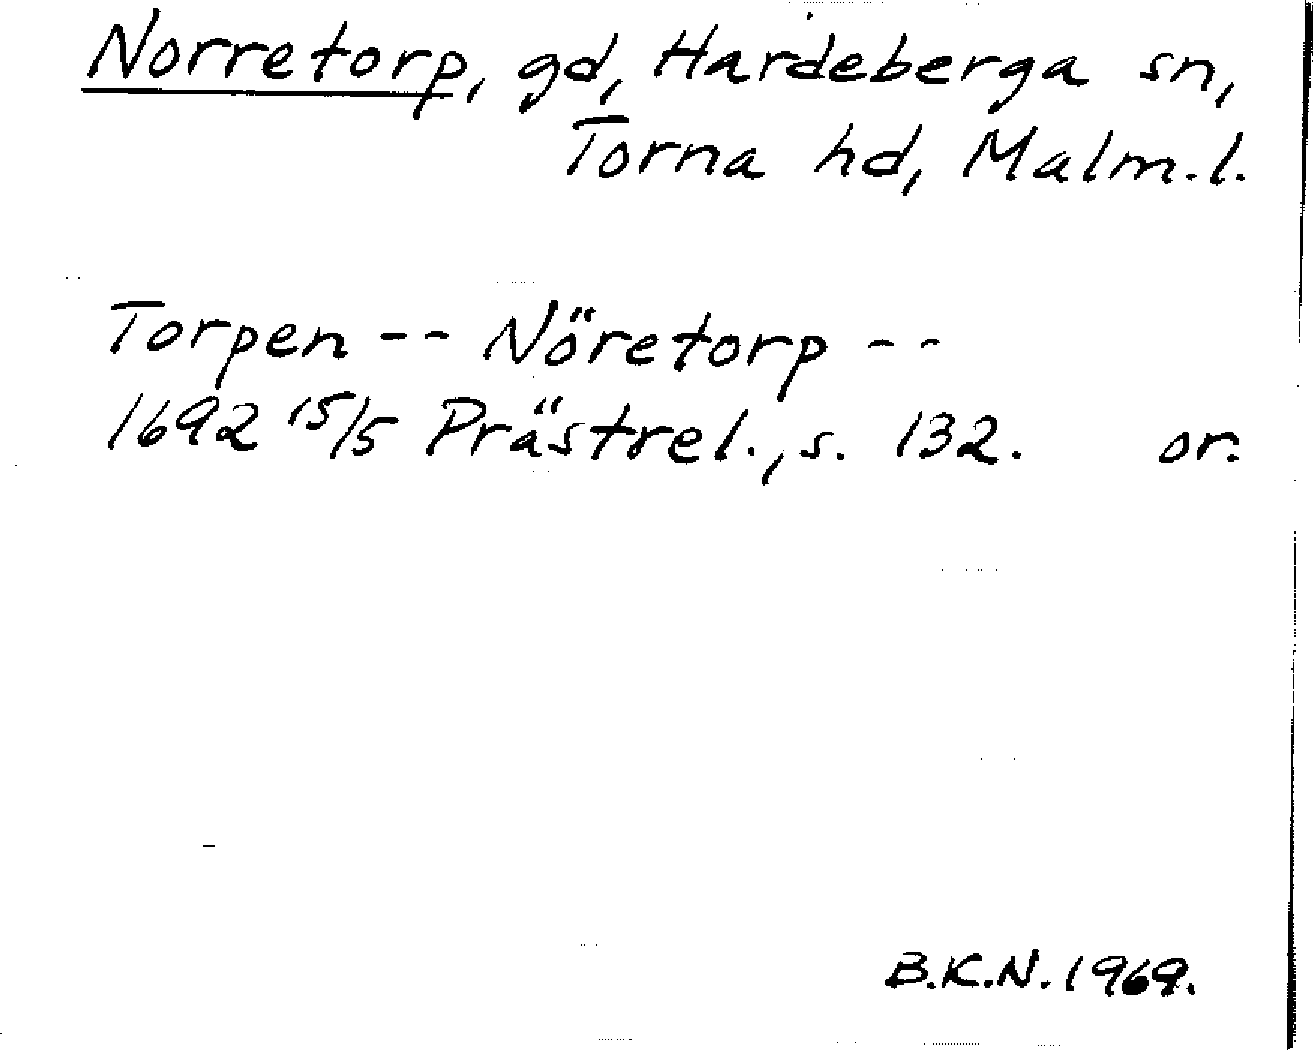 Norretorp, gd, Hardeberga sn,
Torna hd, Malm.l.
Torpen -- Nöretorp --
1692 15/5 Prästrel., s. 132. or.
B.K.N. 1969.